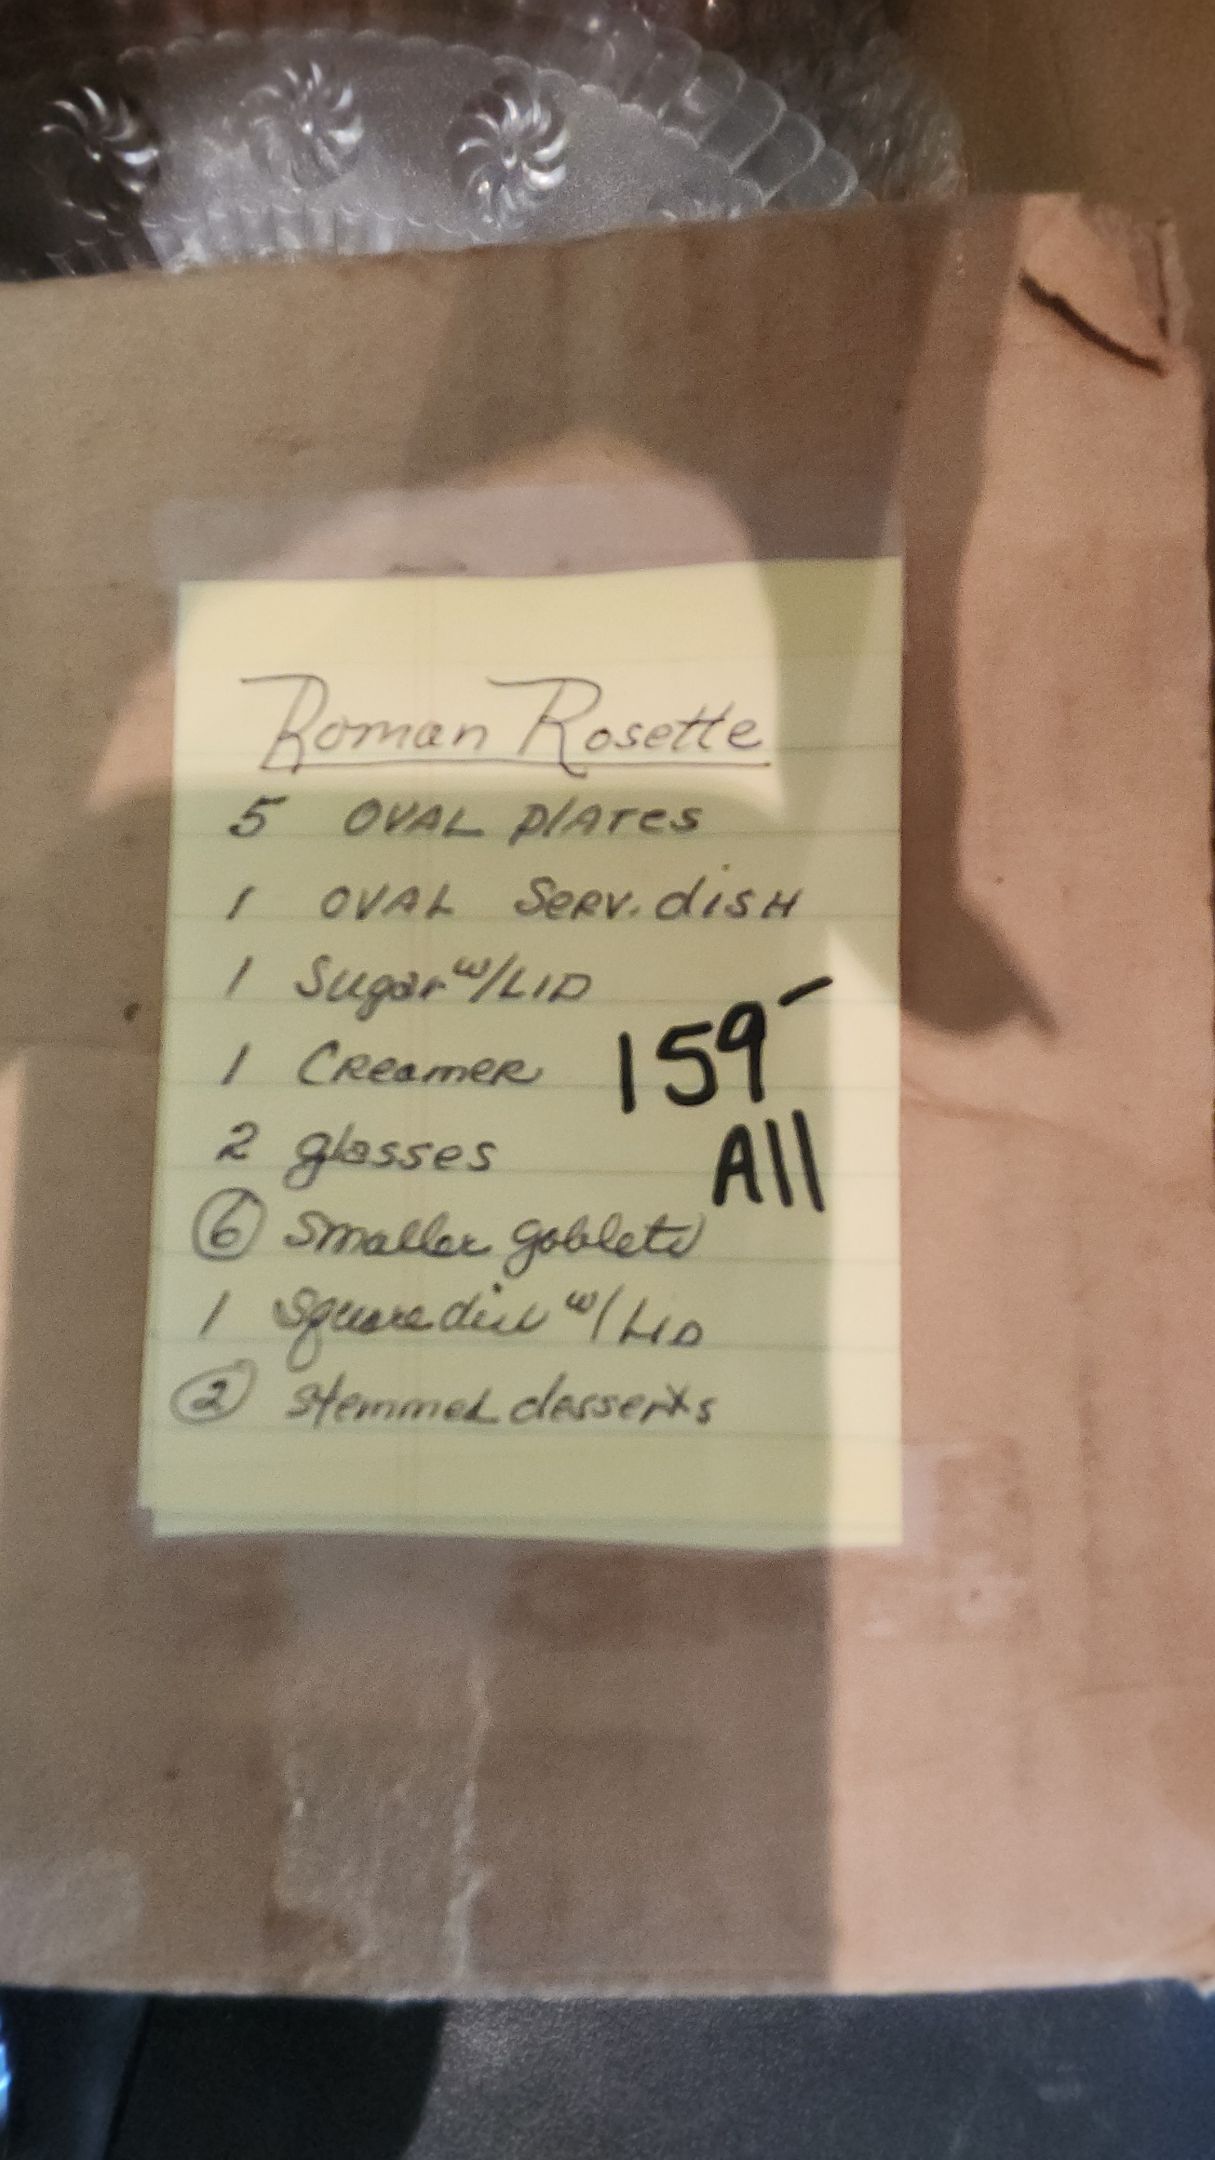 Roman Rosette
5 OVAL plATes
1 OVAL SeRV. dISH
1 Sugar w/LID
1 CReameR
159-
2 glasses
All
6 smaller goblets
1 square dish w/LID
2 stemmed desserts